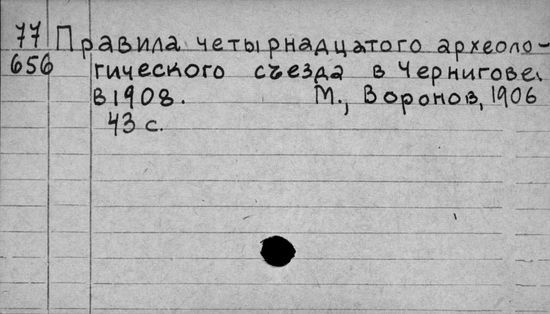 77 Правила четырнадцатого археоло-
656 гического съезда в Чернигове
в 1908. М., Воронов, 1906
43 с.